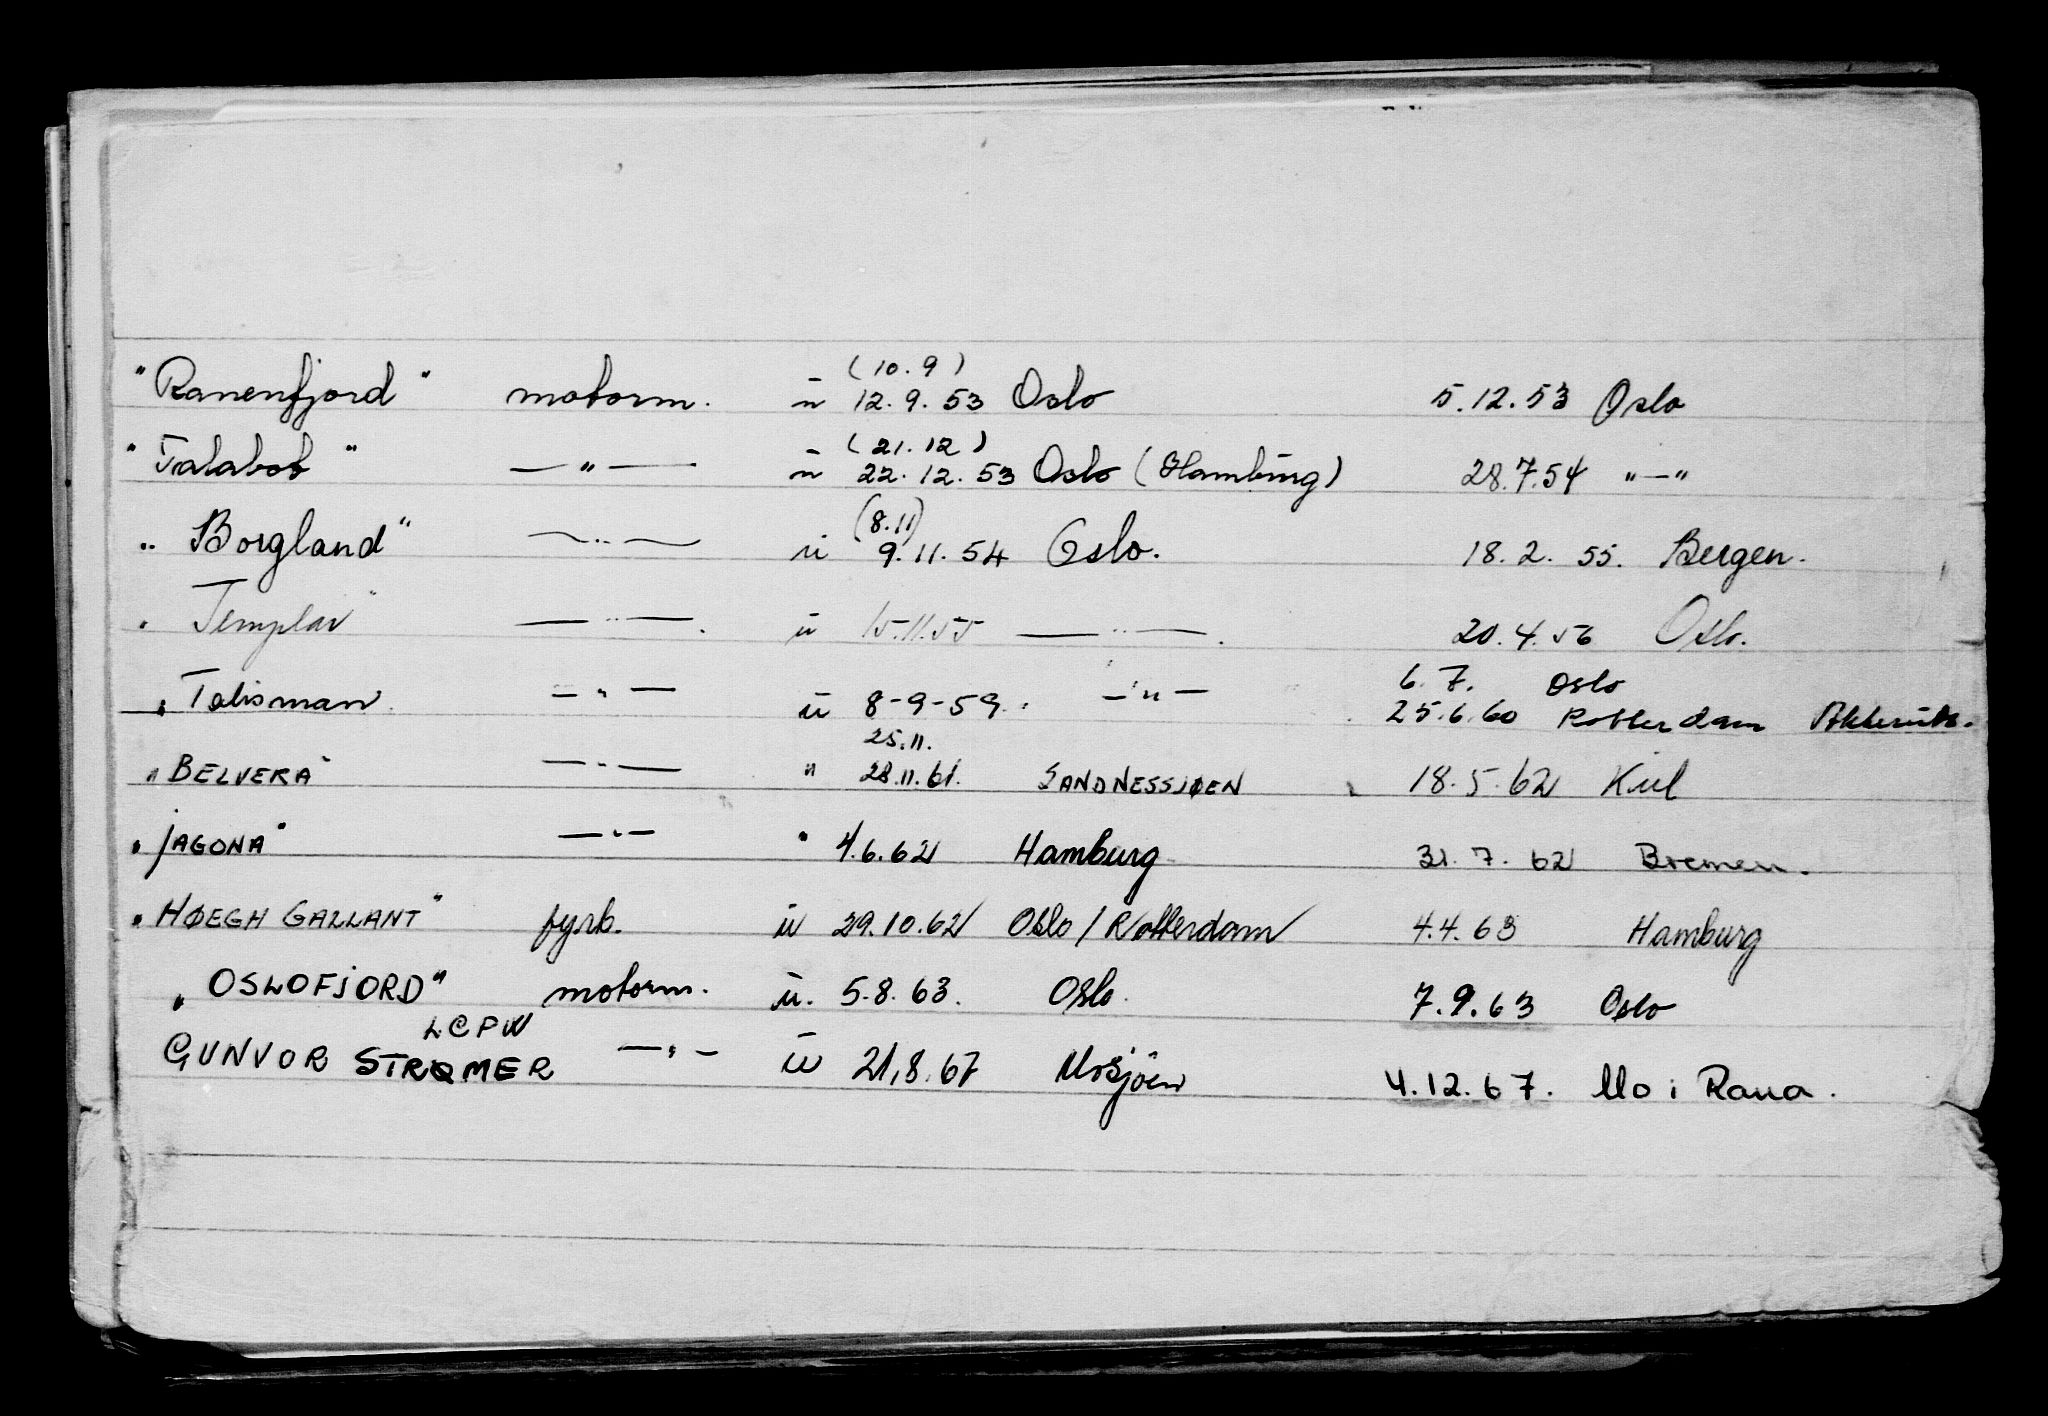 (10.9)
"Ranenfjord" motorm. u 12.9.53 Oslo 5.12.53 Oslo
(21.12)
"Talabot" —"— u 22.12.53 Oslo (Hamburg) 28.7.54 "—"
(8.11)
"Borgland" —"— u 9.11.54 Oslo. 18.2.55. Bergen.
"Templar" —"—. u 15.11.55 —"—. 20.4.56 Oslo.
6.7. Oslo
"Talisman —"— u 8-9-59. —"— 25.6.60 Rotterdam
25.11.
"BELVERA" —"— " 28.11.61. SANDNESSJØEN 18.5.62 Kiel
"JAGONA" —"— " 4.6.62 Hamburg 31.7.62 Bremen.
"HØEGH GALLANT" fyrb. u 29.10.62 Oslo / Rotterdam 4.4.63 Hamburg
"OSLOFJORD" motorm. u. 5.8.63. Oslo. 7.9.63 Oslo
LCPW
GUNVOR STRØMER —"— u 21.8.67 Mosjöen 4.12.67. Mo i Rana.